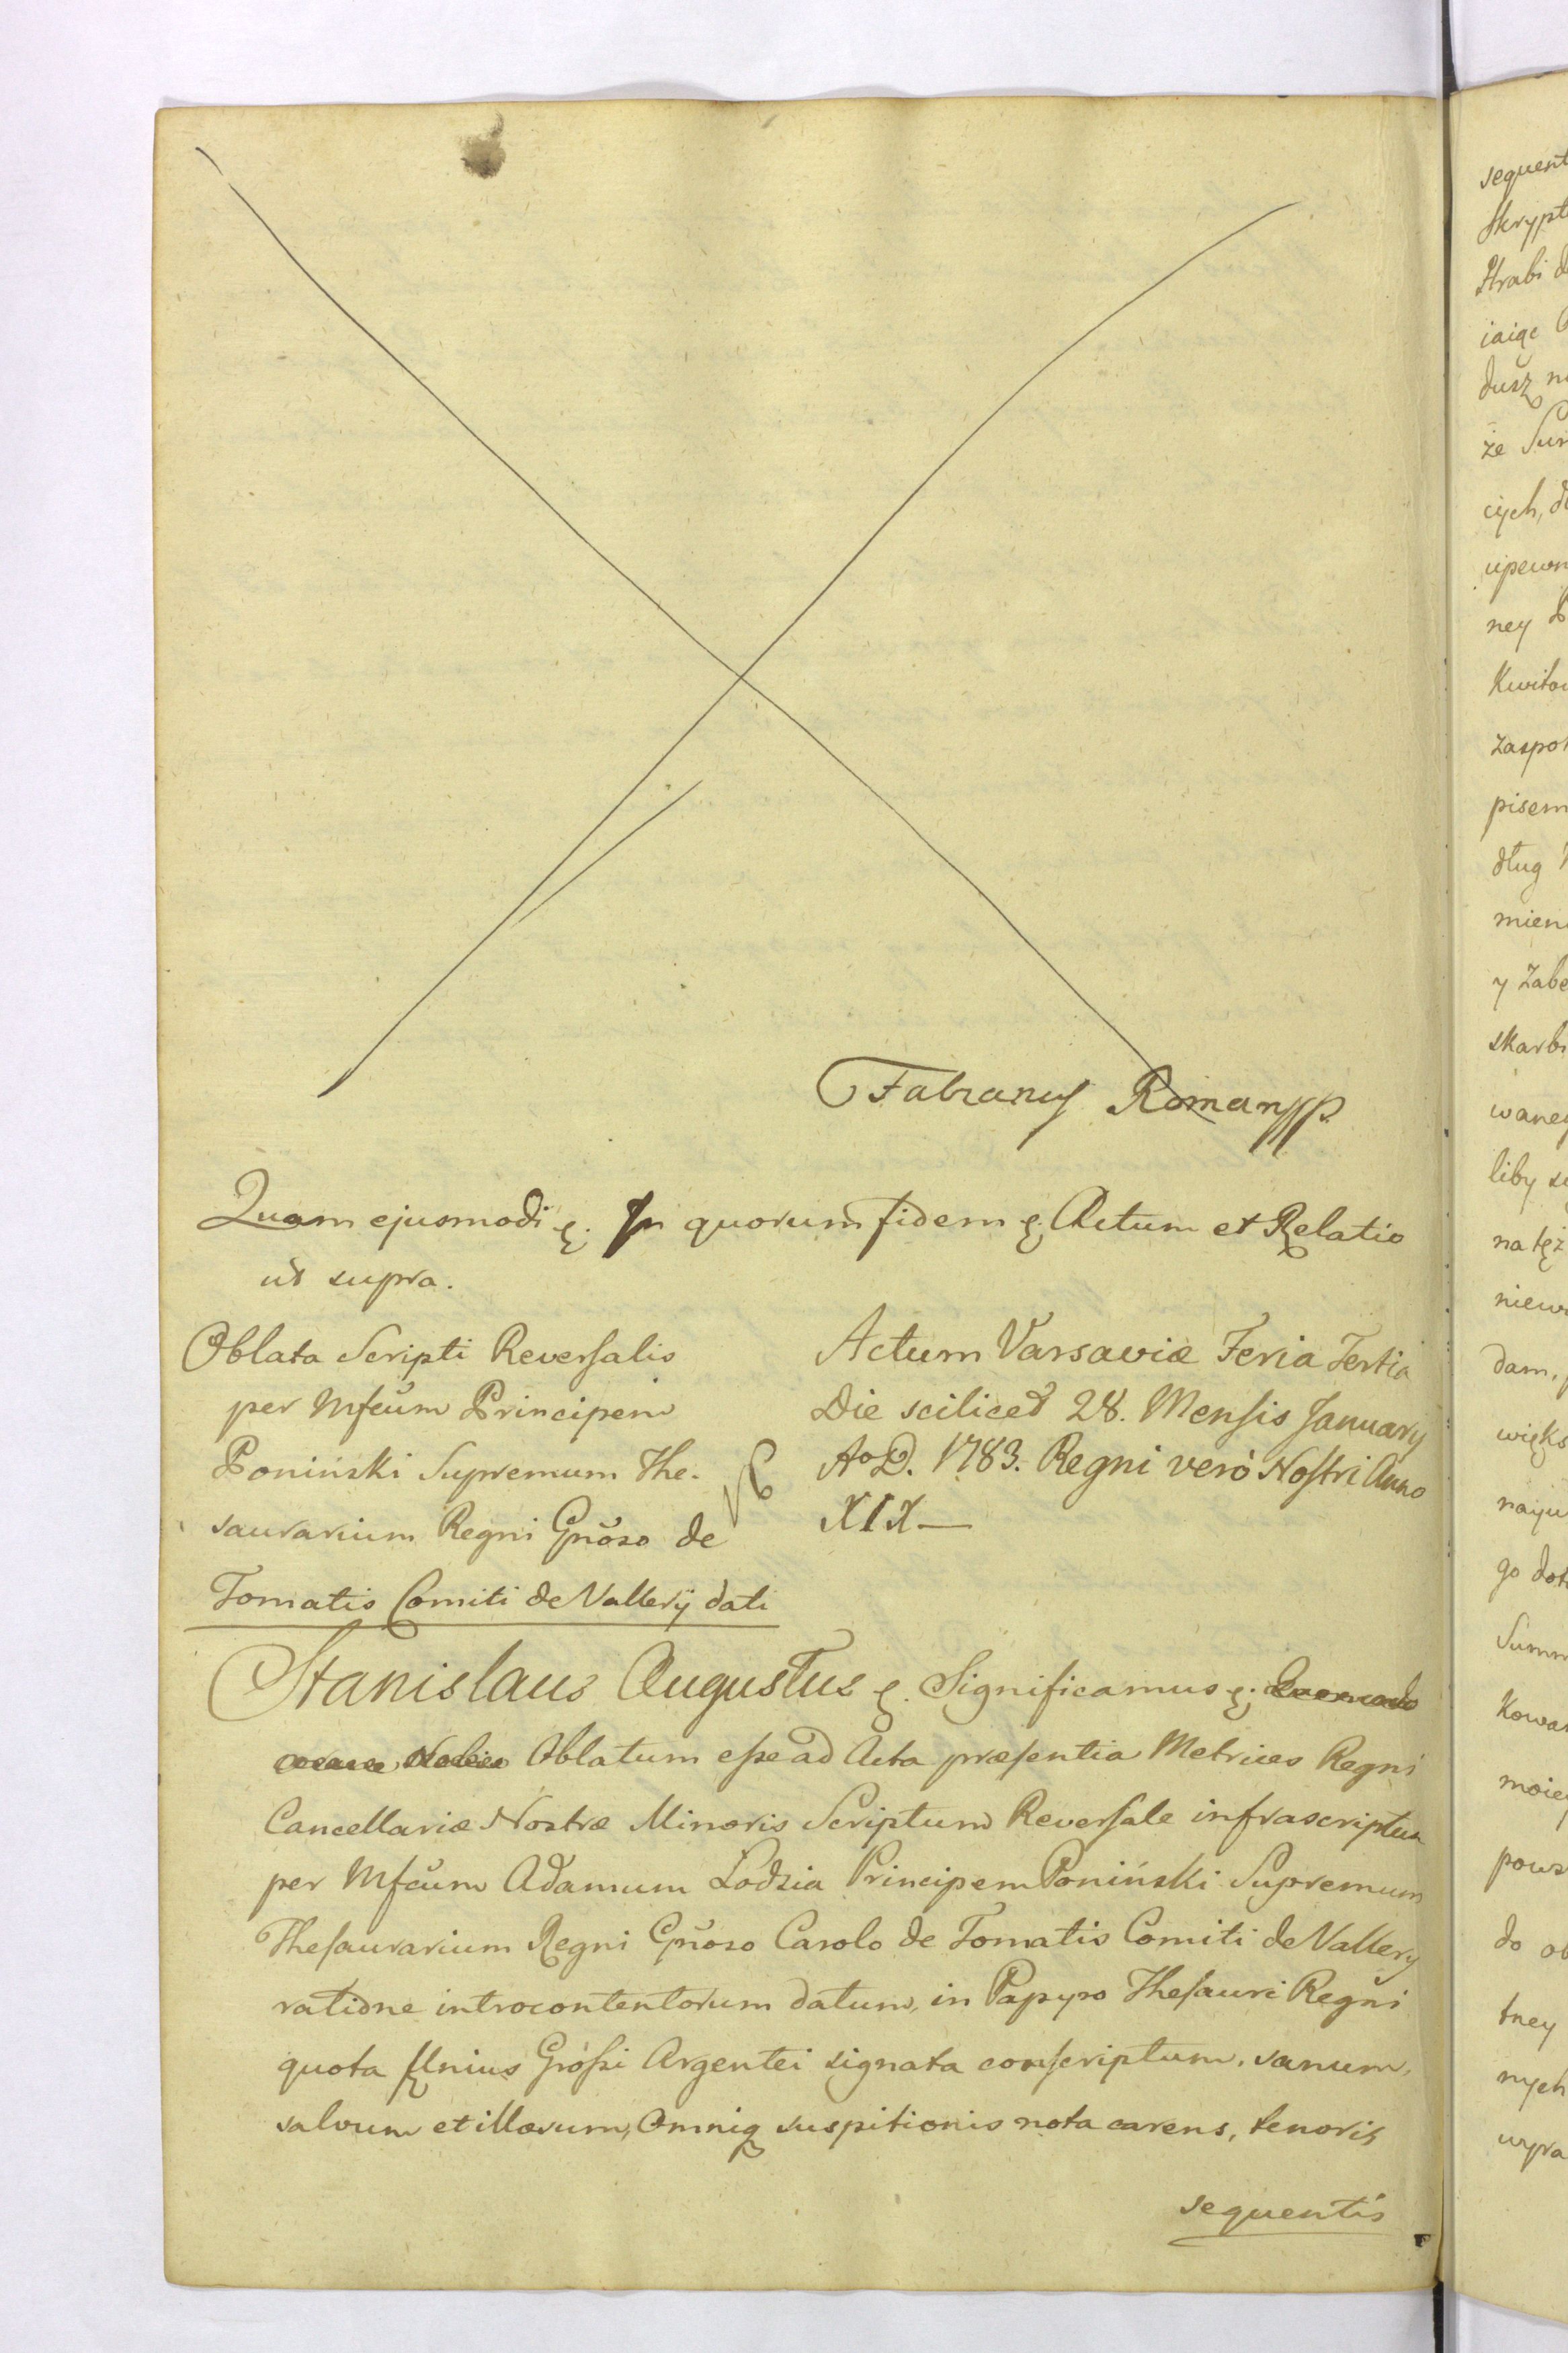 Fabianus Roman mpp.
Quam ejusmodi &. In quorum fidem &. Actum et Relatio
ut supra.
Oblata Scripti Reversalis
per Mfcum Principem
Poniński Supremum The-
saurarium Regni Gnoso de
Tomatis Comiti de Vallery dati
Actum Varsaviæ Feria Tertia
Die scilicet 28. Mensis January
Ao D. 1783. Regni verò Nostri Anno
XIX—
Stanislaus Augustus &. Significamus &.
Oblatum esse ad Acta præsentia Metrices Regni
Cancellariæ Nostræ Minoris Scriptum Reversale infrascriptum
per Mfcum Adamum Lodzia Principem Poniński Supremum
Thesaurarium Regni Gnoso Carolo de Tomatis Comiti de Vallery
ratione introcontentorum datum, in Papyro Thesauri Regni
quota Unius Grossi Argentei signata conscriptum, sanum,
salvum et illæsum, Omniq suspitionis nota carens, tenoris
sequentis
sequent
Skrypt
Hrabi
iaiąc
dusz
że
cych,
upewn
ney
Kwito
zaspok
pisem
dług
mien
y Zabe
skarb
waney
liby
na też
niew
dam,
więks
nayu
go dot
Summ
Kowa
moiey
pows
do ob
tney
nych
wypra